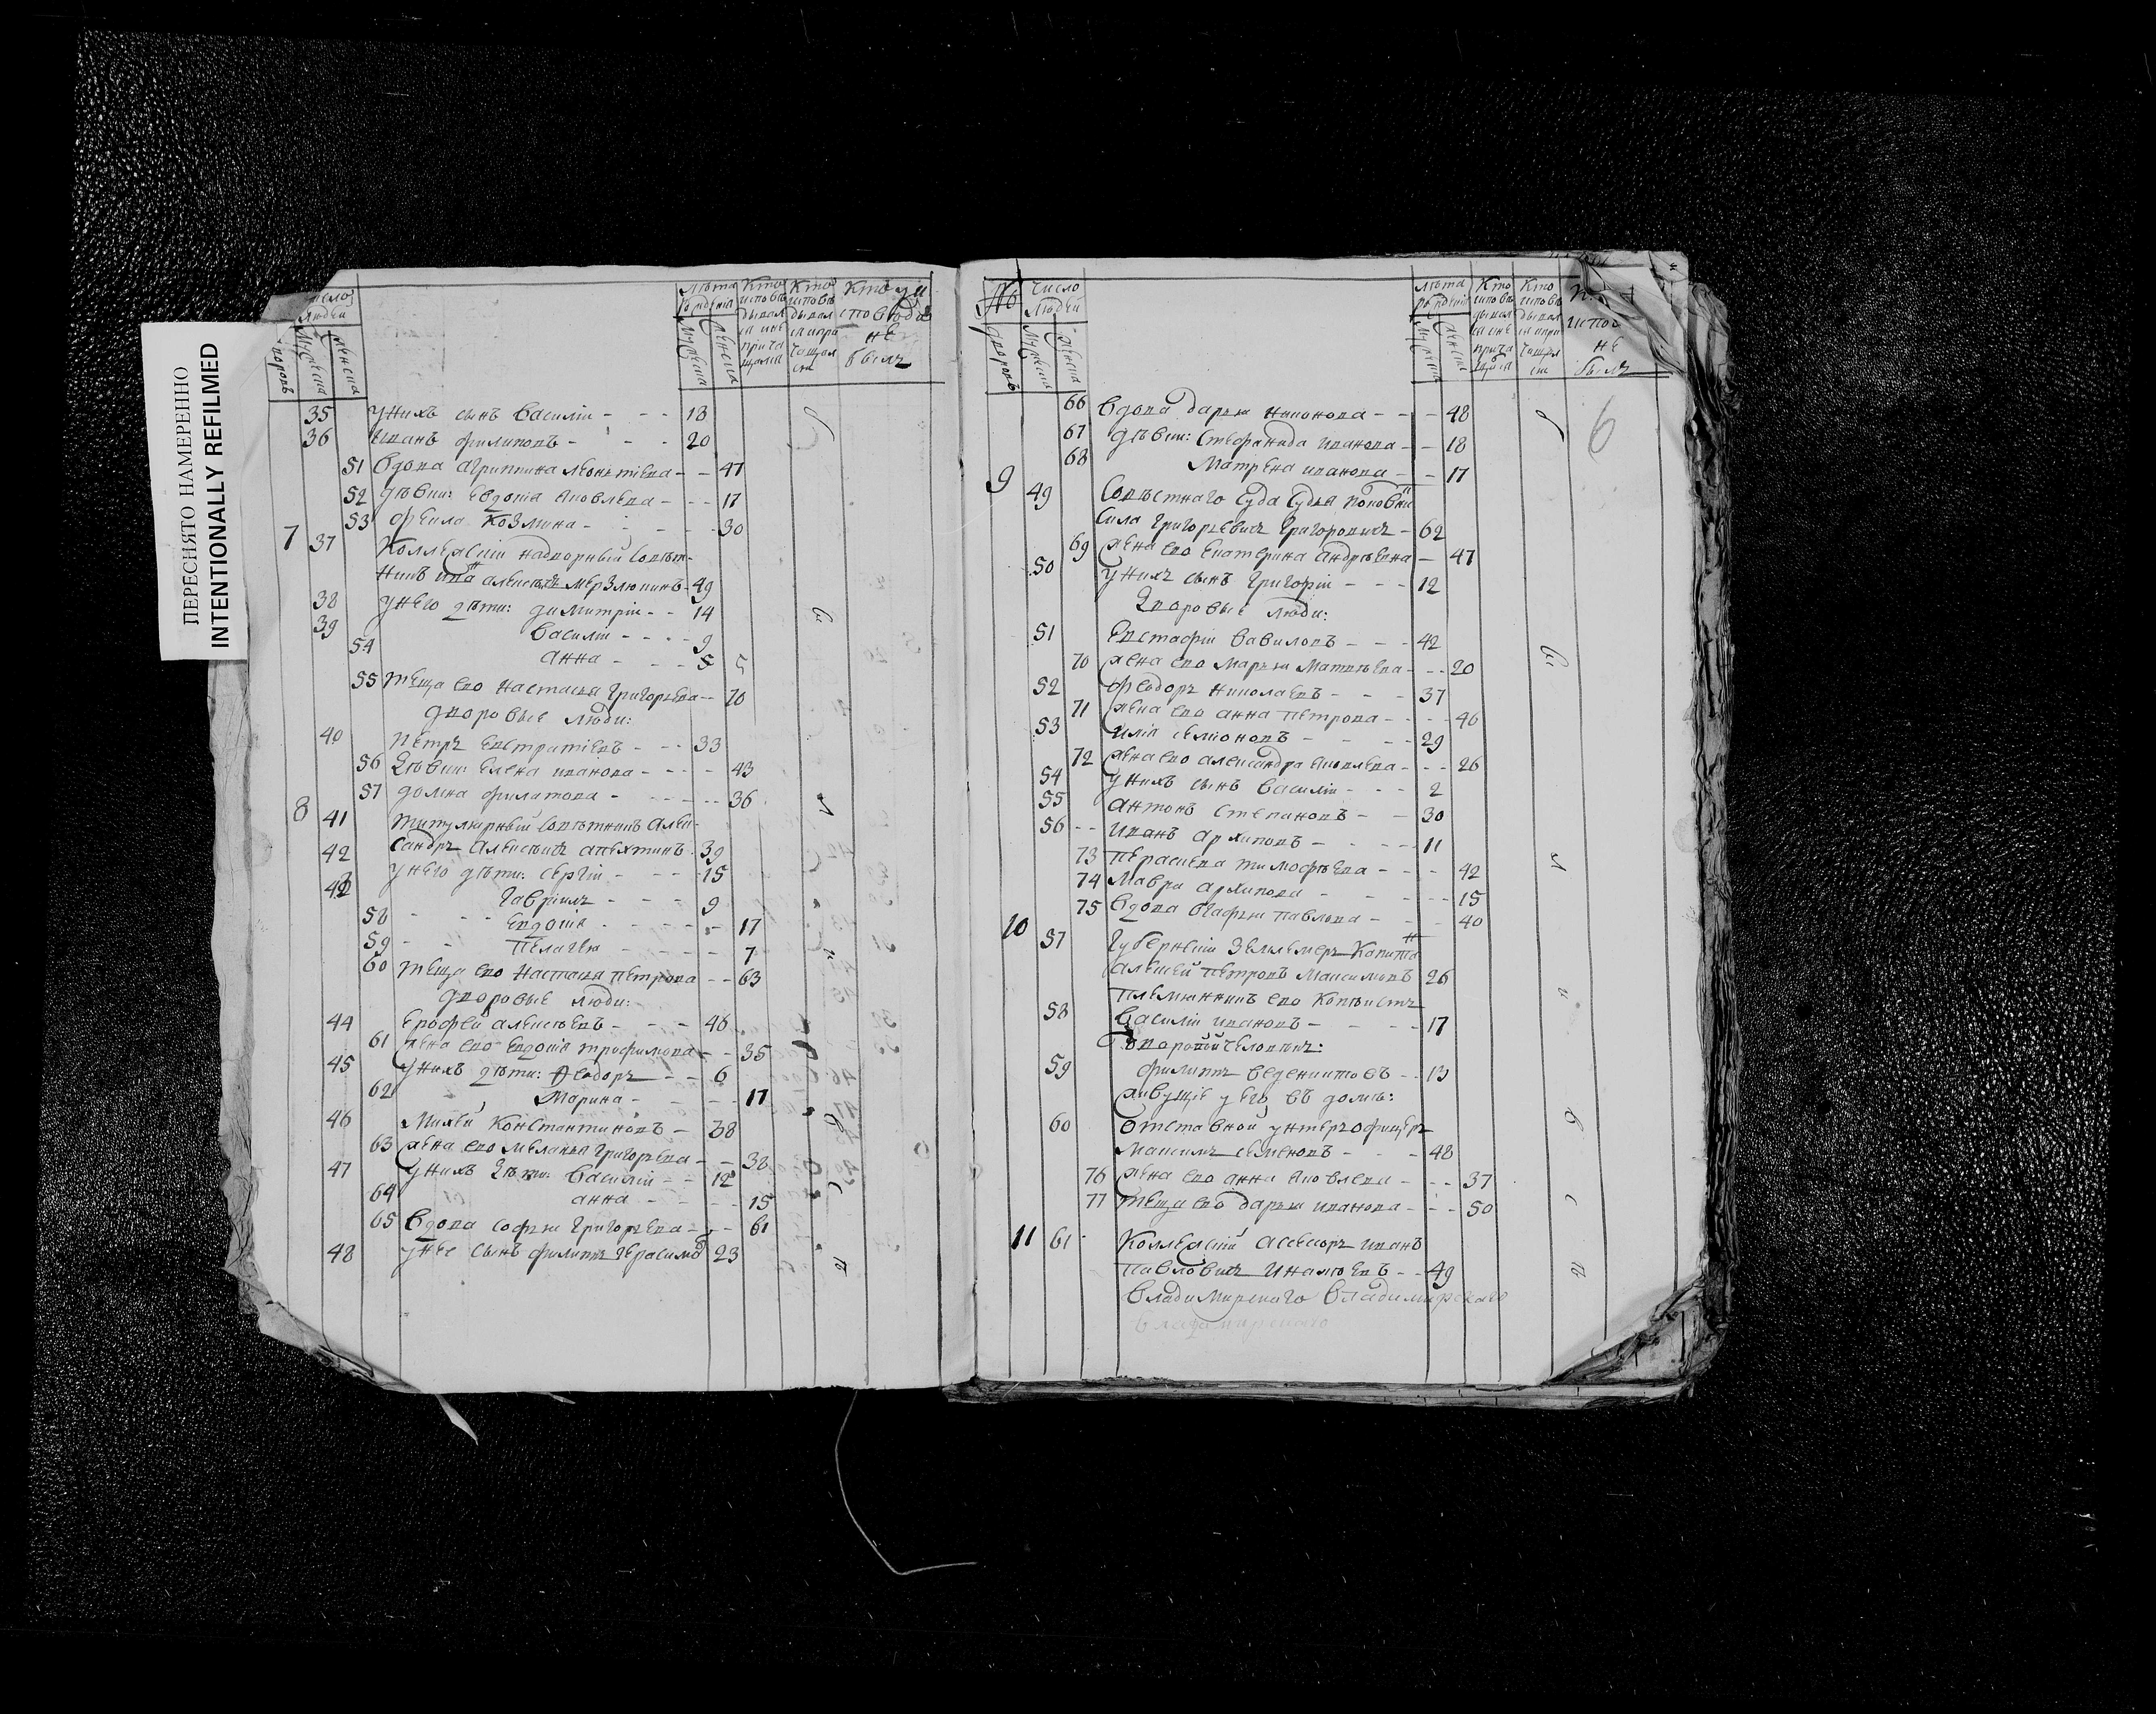 ПЕРЕСНЯТО НАМЕРЕННО
INTENTIONALLY REFILMED
число людей
дворовъ
мужеска
женска
лѣта рожденія
мужеска
женска
Кто исповѣдывался и не причащался
Кто исповѣдывался и причащался
Кто у исповѣди не былъ
35 у нихъ сынъ Василіи - - - 13
36 Иванъ филиповъ - - - 20
51 Вдова агрипина леонтіева - - 47
52 дѣвки: Евдокія яковлева - - - 17
53 фекла Козмина - - - 30
7 37 Коллежскіи надворныи Совѣт-
никъ ива алексѣевъ мерзлюкинъ - 49
38 у него дѣти: димитріи - - 14
39 Василіи - - - - 9
54 анна - - - 5 5
55 теща ево настасья григорьева - - 70
дворовые люди:
40 Петръ Евстратіевъ - - - 33
56 дѣвки: Елена иванова - - - - 43
57 домна филатова - - - - - 36
8 41 титулярныи Совѣтникъ алек-
сандръ алексѣевичь апехтинъ 39
42 у него дѣти: сергіи - - - 15
43 Гавріилъ - - - 9
58 Евдокія - - - - 17
59 Пелагея - - - - 7
60 теща ево Настасья петрова - - 63
дворовые люди:
44 Ерофеи алексѣевъ - - - 46
61 жена ево Евдокія трофимова - - 35
45 у нихъ дѣти: Феодоръ - - 6
62 Марина - - - - 17
46 Михеи Константиновъ - 38
63 жена ево меланья григорьева - - 38
47 у нихъ дѣти: Василіи - - 12
64 анна - - - - 15
65 Вдова софья григорьева - - - 61
48 у нее сынъ филипъ герасимо 23
№ дворовъ
число людей
мужеска
женска
лѣта рожденіи
мужеска
женска
Кто исповѣдывался и не причащался
Кто исповѣдывался и причащался
испо
не
былъ
6
66 Вдова дарья никонова - - - 48
67 дѣвки: Стефанида иванова - - 18
68 Матрена иванова - - 17
9 49 Совѣстнаго Суда Судья
Сила григорьевичь григоровичь - 62
69 жена ево Екатерина андрѣевна - 47
50 у нихъ сынъ григоріи - - - 12
дворовые люди:
51 Евстафіи вавиловъ - - - 42
70 жена ево марья матвѣева - - - 20
52 феодоръ николаевъ - - - 37
71 жена ево анна петрова - - - - 46
53 илія семіоновъ - - - - 29
72 жена ево александра яковлева - - - 26
54 у нихъ сынъ василіи - - - 2
55 антонъ степановъ - - 30
56 - - иванъ архиповъ - - - - 11
73 Парасцева тимофѣева - - - 42
74 мавра архипова - - - - 15
75 вдова агафья павлова - - - 40
10 57 губернскіи землемеръ Капита
алексеи петровъ максимовъ 26
племянникъ ево копѣистъ
58 Василіи ивановъ - - - - 17
дворовыи человѣкъ:
59 филипъ веденихтовъ - - 13
живущіе у его въ доме:
60 отставнои унтеръ офицеръ
Максимъ семеновъ - - - 48
76 жена ево анна яковлева - - - 37
77 теща ево дарья иванова - - - 50
11 61 Коллежскіи асессоръ иванъ
павловичь - - 49
Владимирскаго Владимирскаго
Владимирскаго